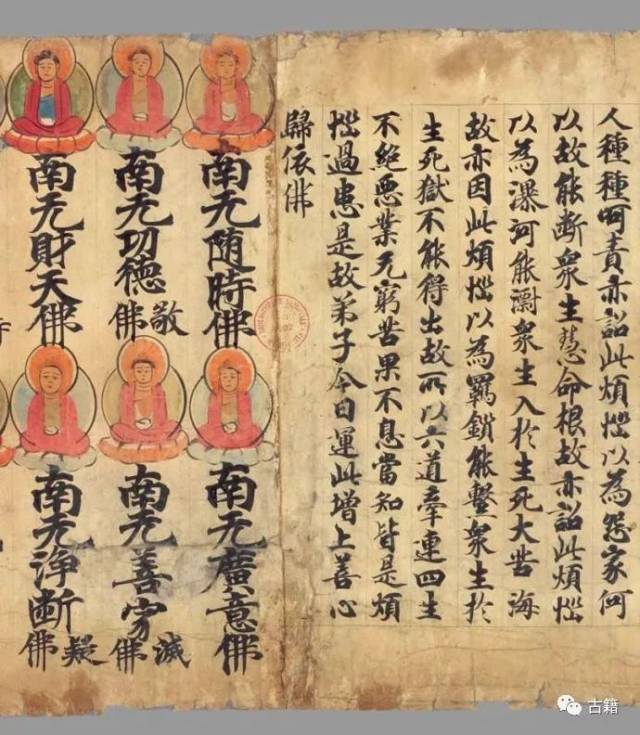 人種種呵責亦詺此煩惱以為怨家何
以故能断衆生慧命根故亦詺此煩惱
以為瀑河能漂衆生入於生死大苦海
故亦因此煩惱以為羈鎖能繫衆生於
生死獄不能得出故所以六道牽連四生
不絕惡業无窮苦果不息當知皆是煩
惱過患是故弟子今日運此增上善心
歸依佛
南无随時佛
南无廣意佛
南无功德敬佛
南无善寂滅佛
南无財天佛
南无浄断疑佛
古籍